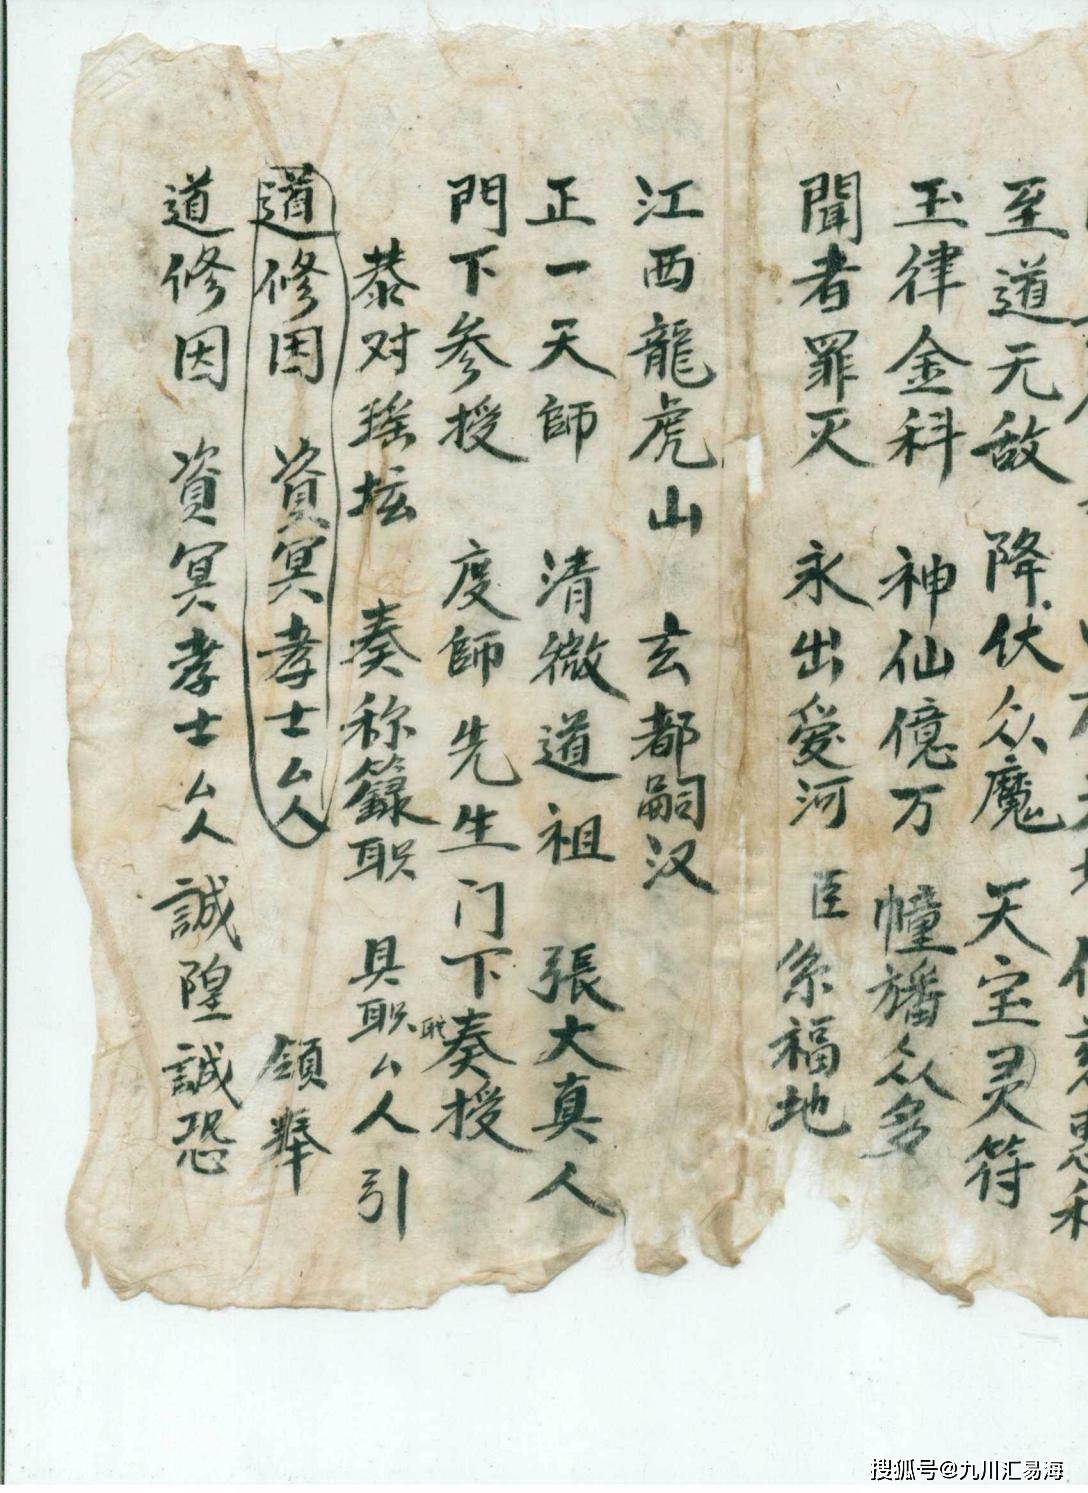 至道无敌 降伏众魔 天宝灵符
玉律金科 神仙億万 幢旛众多
聞者罪灭 永出爱河 臣系福地
江西龍虎山 玄都嗣汉
正一天師 清微道祖 張大真人
門下参授 度師先生门下奏授
恭对瑶坛 奏称籙职 具职厶人引
道修因 資冥孝士厶人 領奉
道修因 資冥孝士厶人 誠隍誠恐
搜狐号@九川汇易海